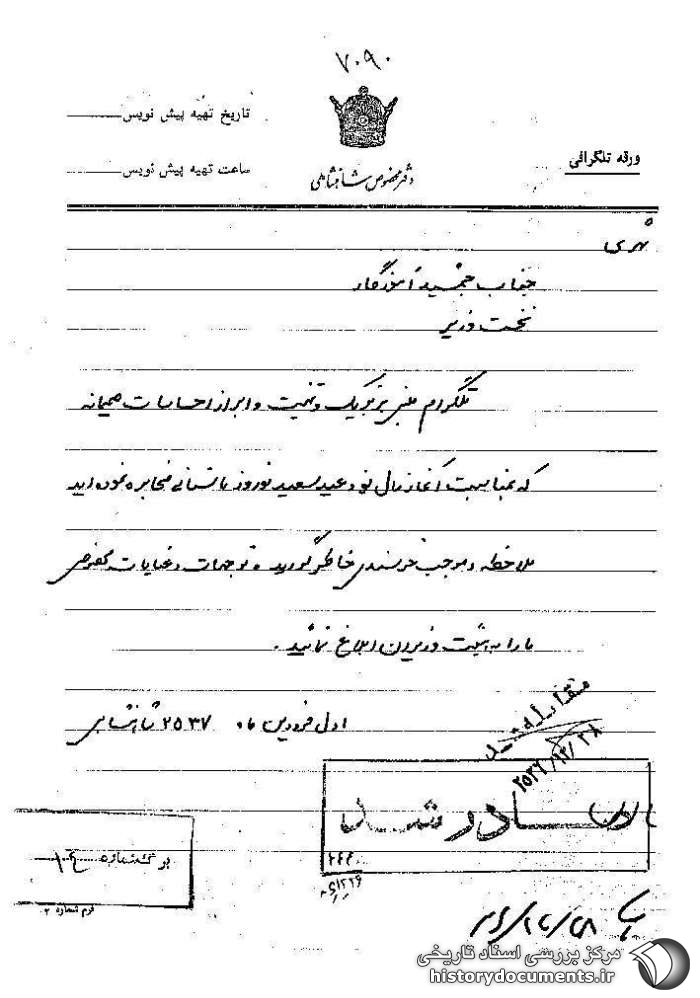 ۷۰۹۰
تاریخ تهیه پیش نویس
ورقه تلگرافی
ساعت تهیه پیش نویس
دفتر مخصوص شاهنشاهی
شهری
جناب جمشید آموزگار
نخست وزیر
تلگرام مبنی بر تبریک و تهنیت و ابراز احساسات صمیمانه
که بمناسبت آغاز سال نو و عید سعید نوروز باستانی مخابره نموده اید
ملاحظه و موجب خرسندی خاطر گردید، توجهات و عنایات مخصوص
ما را به هیئت وزیران ابلاغ نمائید.
اول فروردین ماه ۲۵۳۷ شاهنشاهی
مقابله شد
۲۵۳۶/۱۲/۲۸
صادر شد
برگ شماره
فرم شماره ۲
مرکز بررسی اسناد تاریخی
historydocuments.ir